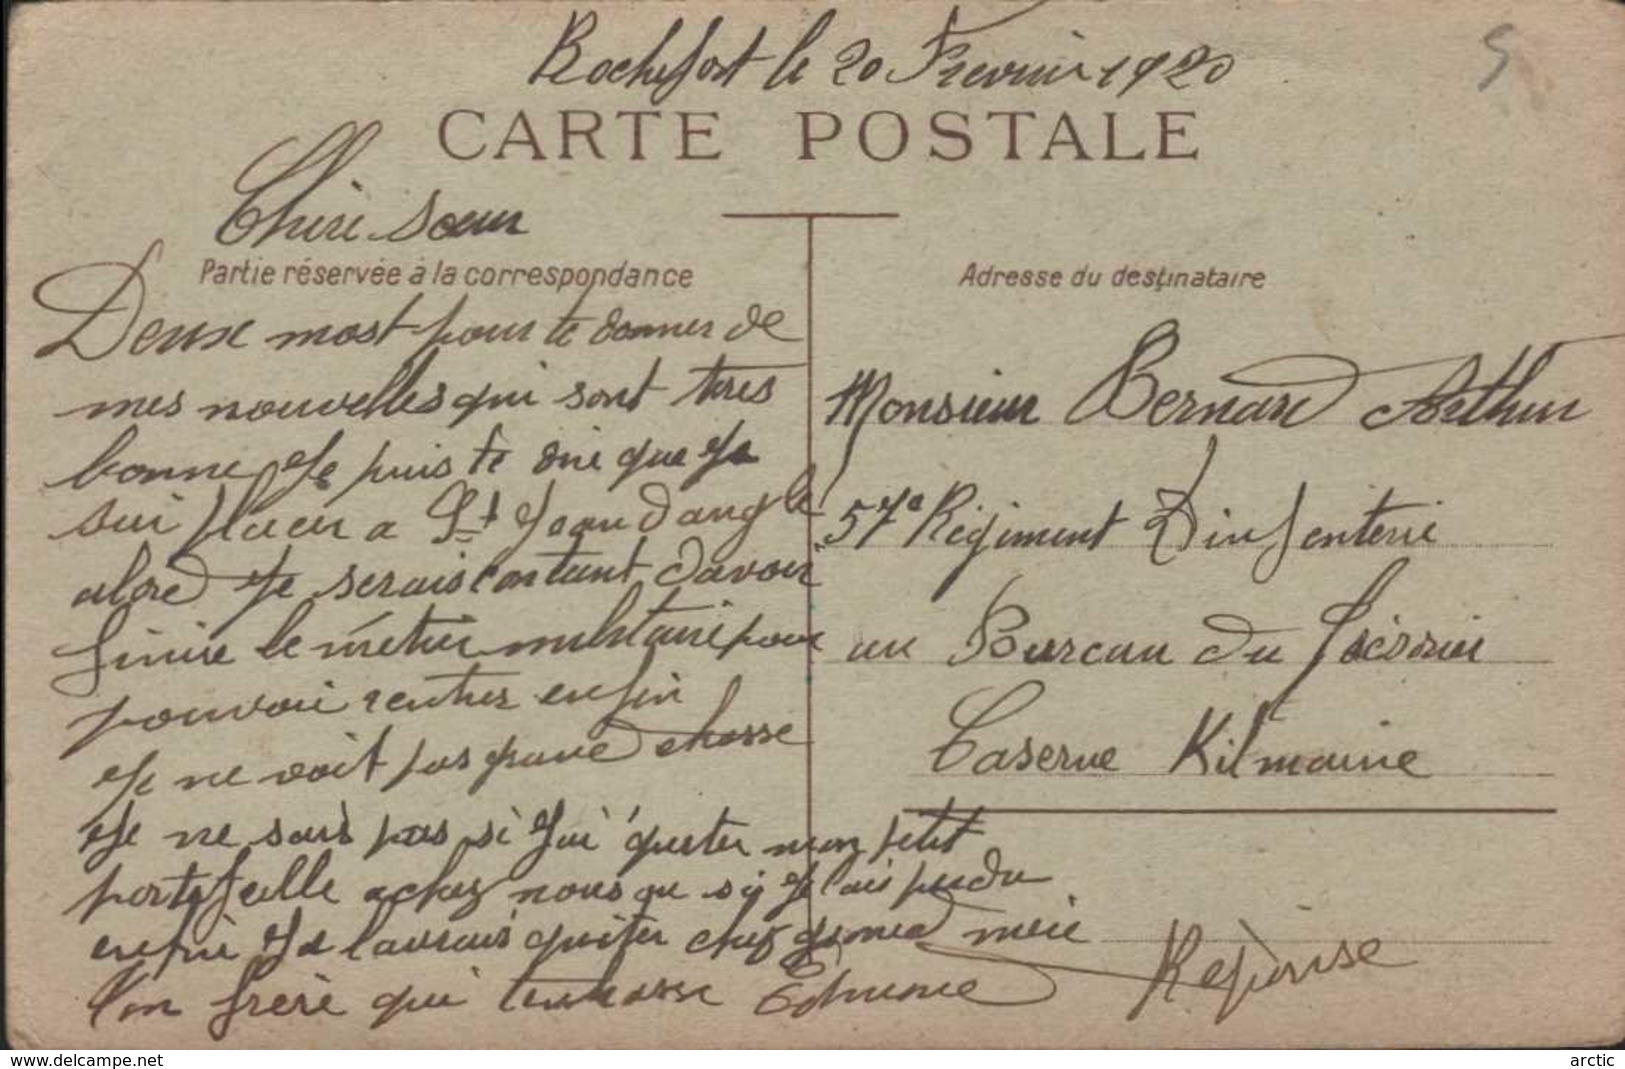 Rochefort le 20 Fevrier 1920
CARTE POSTALE
Chère Sœur
Partie réservée à la correspondance
Deux most pour te donner de
mes nouvelles qui sont tres
bonne Je puis te dire que Je
sui placer a St Jean dangle
alord Je serais contant davoir
finire le métier militaire pour
pouvoir rentrer enfin
Je ne voit pas grand chosse
Je ne sais pas si Jai quiter mon petit
portefeulle a chez nous ou si Je lais perdu
enfin Je laurais quiter chez grand mère
Ton frère qui tembrasse Edmond
Adresse du destinataire
Monsieur Bernard Arthur
57e Régiment Dinfenterie
au Bureau du Trésorier
Caserne Kilmaine
Reponse
www.delcampe.net
arctic